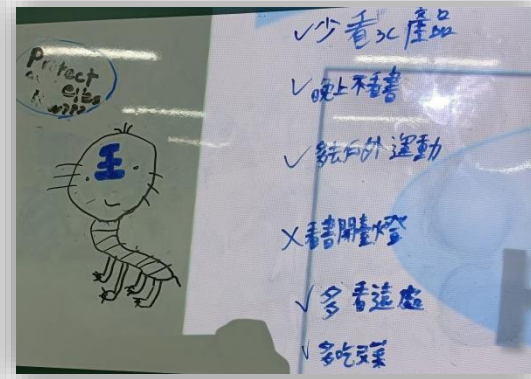 Protect
王
✓少看3C產品
✓晚上不看書
✓多去戶外運動
✗看書開臺燈
✓多看遠處
✓多吃菜